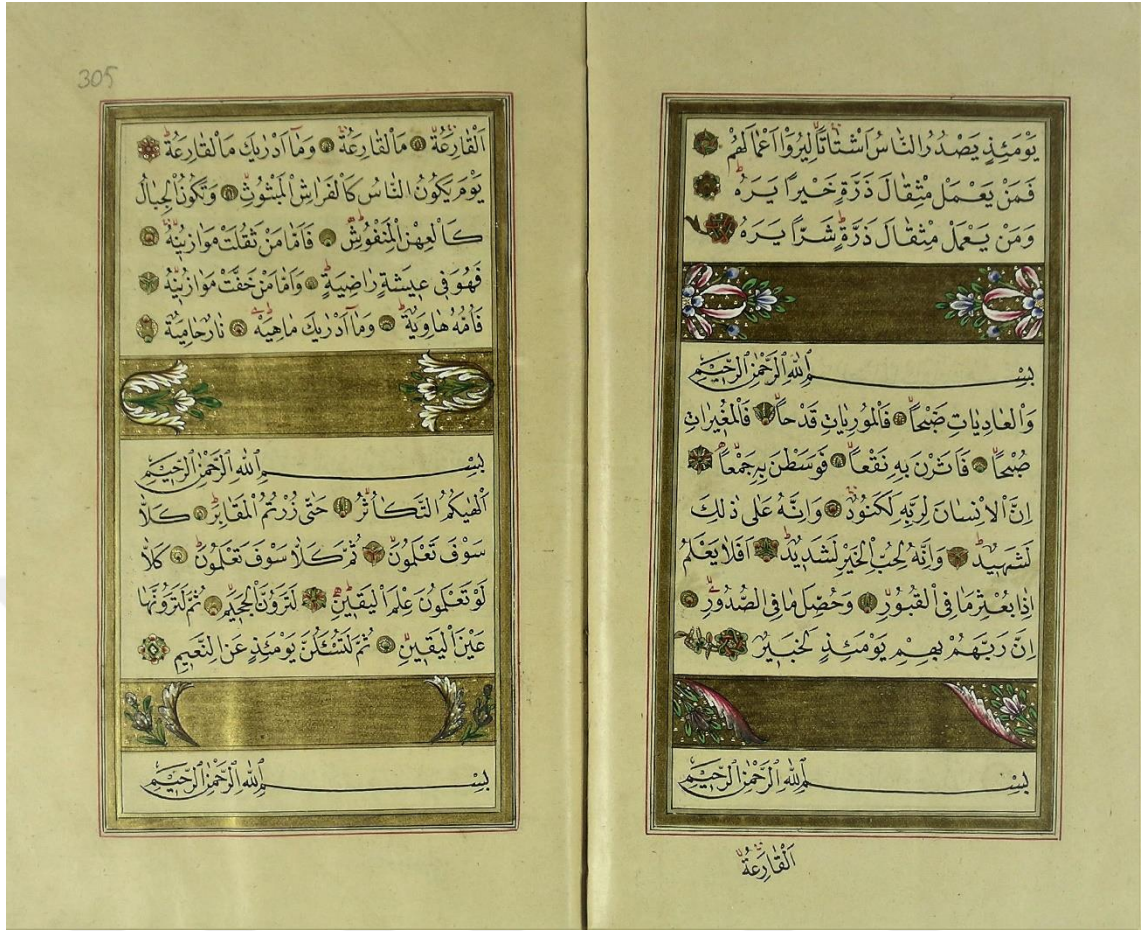 يَوْمَئِذٍ يَصْدُرُ النَّاسُ اَشْتَاتاً لِيُرَوْا اَعْمَالَهُمْ
فَمَنْ يَعْمَلْ مِثْقَالَ ذَرَّةٍ خَيْراً يَرَهُ
وَمَنْ يَعْمَلْ مِثْقَالَ ذَرَّةٍ شَرّاً يَرَهُ
بِسْمِ اللهِ الرَّحْمٰنِ الرَّحِيمِ
وَالْعَادِيَاتِ ضَبْحاً فَالْمُورِيَاتِ قَدْحاً فَالْمُغِيرَاتِ
صُبْحاً فَاَثَرْنَ بِهِ نَقْعاً فَوَسَطْنَ بِهِ جَمْعاً
اِنَّ الْاِنْسَانَ لِرَبِّهِ لَكَنُودٌ وَاِنَّهُ عَلٰى ذٰلِكَ
لَشَهِيدٌ وَاِنَّهُ لِحُبِّ الْخَيْرِ لَشَدِيدٌ اَفَلَا يَعْلَمُ
اِذَا بُعْثِرَ مَا فِى الْقُبُورِ وَحُصِّلَ مَا فِى الصُّدُورِ
اِنَّ رَبَّهُمْ بِهِمْ يَوْمَئِذٍ لَخَبِيرٌ
بِسْمِ اللهِ الرَّحْمٰنِ الرَّحِيمِ
اَلْقَارِعَةُ
305
اَلْقَارِعَةُ مَا لْقَارِعَةُ وَمَا اَدْرٰيكَ مَا لْقَارِعَةُ
يَوْمَ يَكُونُ النَّاسُ كَالْفَرَاشِ الْمَبْثُوثِ وَتَكُونُ الْجِبَالُ
كَالْعِهْنِ الْمَنْفُوشِ فَاَمَّا مَنْ ثَقُلَتْ مَوَازِينُهُ
فَهُوَ فِى عِيشَةٍ رَاضِيَةٍ وَاَمَّا مَنْ خَفَّتْ مَوَازِينُهُ
فَاُمُّهُ هَاوِيَةٌ وَمَا اَدْرٰيكَ مَاهِيَهْ نَارٌ حَامِيَةٌ
بِسْمِ اللهِ الرَّحْمٰنِ الرَّحِيمِ
اَلْهٰيكُمُ التَّكَاثُرُ حَتّٰى زُرْتُمُ الْمَقَابِرَ كَلَّا
سَوْفَ تَعْلَمُونَ ثُمَّ كَلَّا سَوْفَ تَعْلَمُونَ كَلَّا
لَوْ تَعْلَمُونَ عِلْمَ الْيَقِينِ لَتَرَوُنَّ الْجَحِيمَ ثُمَّ لَتَرَوُنَّهَا
عَيْنَ الْيَقِينِ ثُمَّ لَتُسْئَلُنَّ يَوْمَئِذٍ عَنِ النَّعِيمِ
بِسْمِ اللهِ الرَّحْمٰنِ الرَّحِيمِ